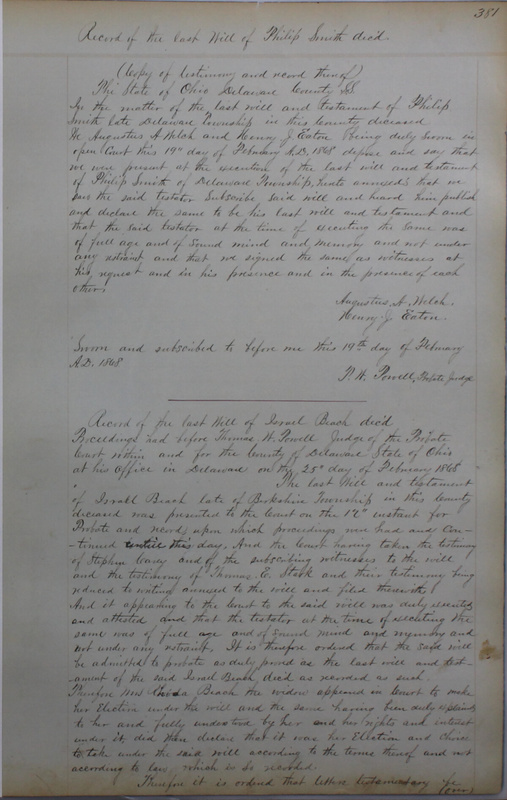 381
Record of the last Will of Philip Smith dec'd.
(Copy of testimony and record thereof)
The State of Ohio Delaware County SS
In the matter of the last will and testament of Philip
Smith late Delaware Township in this County deceased
We Augustus A Welch and Henry J. Eaton being duly sworn in
open Court this 19" day of February A.D. 1868 depose and say that
we were present at the execution of the last will and testament
of Philip Smith of Delaware Township, hereto annexed that we
saw the said testator Subscribe said will and heard him publish
and declare the same to be his last will and testament and
that the said testator at the time of executing the same was
of full age and of sound mind and memory and not under
any restraint and that we signed the same as witnesses at
his request and in his presence and in the presence of each
other.
Augustus A. Welch.
Henry J. Eaton.
Sworn and subscribed to before me this 19th day of February
A.D. 1868
T. W. Powell, Probate Judge
Record of the last Will of Israel Beach dec'd
Proceedings had before Thomas W. Powell Judge of the Probate
Court within and for the County of Delaware State of Ohio
at his Office in Delaware on the 25" day of February 1868
The last Will and testament
of Israel Beach late of Berkshire Township in this County
deceased was presented to the Court on the 12" instant for
Probate and record, upon which proceedings were had and Con-
-tinued until this day. And the Court having taken the testimony
of Stephen and of the subscribing witnesses to the will
and the testimony of Thomas C. Stark and their testimony being
reduced to writing annexed to the will and filed therewith
And it appearing to the Court to the said will was duly executed
and attested and that the testator at the time of executing the
same was of full age and of sound mind and memory and
not under any restraint. It is therefore ordered that the said will
be admitted to probate as duly proved as the last will and test-
-ament of the said Israel Beach, dec'd as recorded as such.
Therefore Mrs Beach the widow appeared in Court to make
her Election under the will and the same having been duly explained
to her and fully understood by her and her rights and interest
under it, did then declare that it was her Election and Choice
to take under the said will according to the terms thereof and not
according to law, which is so recorded.
Therefore it is ordered that letters testamentary be
(over)